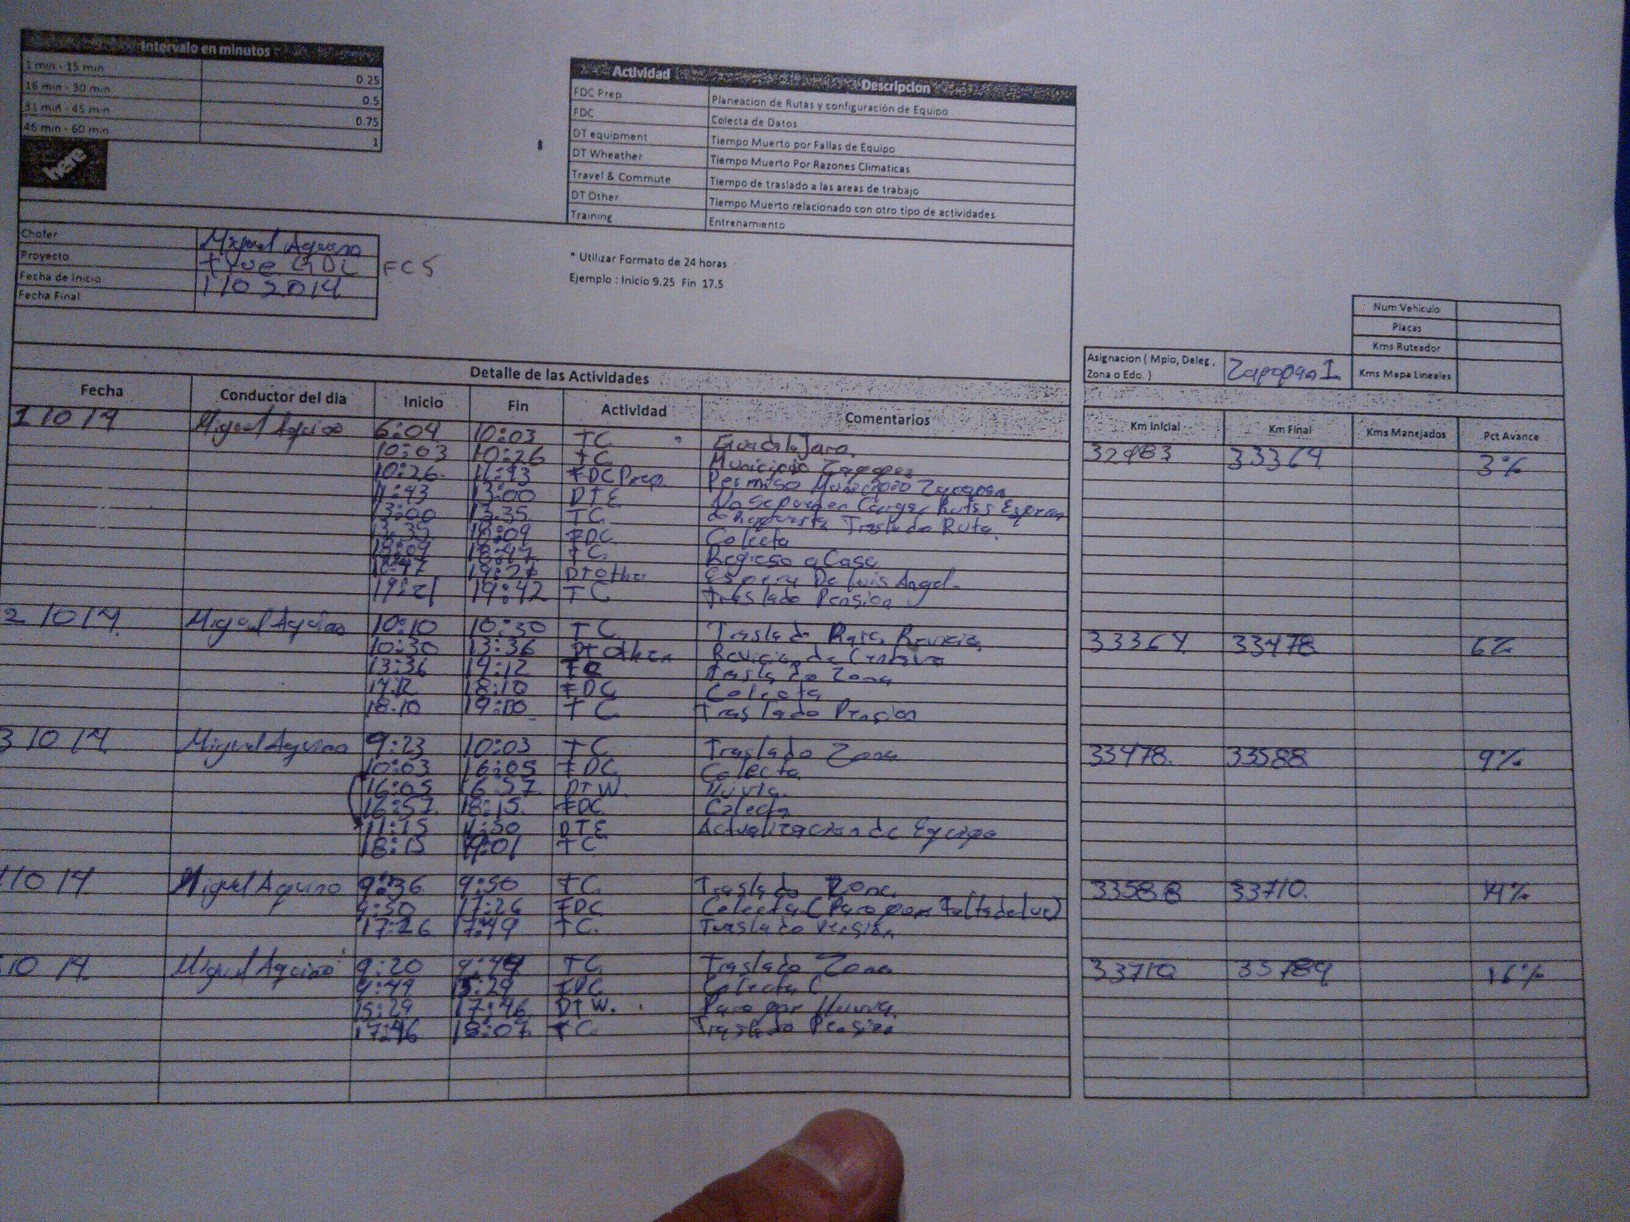 Intervalo en minutos
1 min - 15 min 0.25
16 min - 30 min 0.5
31 min - 45 min 0.75
46 min - 60 min 1
here
Actividad Descripcion
FDC Prep Planeacion de Rutas y configuración de Equipo
FDC Colecta de Datos
DT equipment Tiempo Muerto por Fallas de Equipo
DT Wheather Tiempo Muerto Por Razones Climaticas
Travel & Commute Tiempo de traslado a las areas de trabajo
DT Other Tiempo Muerto relacionado con otro tipo de actividades
Training Entrenamiento
Chofer Miguel Aquino
Proyecto GDL FC5
Fecha de Inicio 1102014
Fecha Final
* Utilizar Formato de 24 horas
Ejemplo : Inicio 9.25 Fin 17.5
Num Vehiculo
Placas
Kms Ruteador
Kms Mapa Lineales
Asignacion ( Mpio, Deleg,
Zona o Edo. ) Zapopan 1
Detalle de las Actividades
Fecha Conductor del dia Inicio Fin Actividad Comentarios Km Inicial Km Final Kms Manejados Pct Avance
1 10 14 Miguel Aquino 6:04 10:03 TC Guadalajara 33364 3%
10:03 10:26 TC Municipio Zapopan
10:26 11:43 FDC Prep Permiso Municipio Zapopan
11:43 13:00 DTE Cargar Rutas Espera
13:00 13:35 TC de Traslado Ruta.
13:35 18:09 FDC Colecta
18:09 18:47 TC Regreso a Casa
18:47 19:21 DT other Espera De Luis Angel
19:21 19:42 TC Traslado Pension
2 10 14 Miguel Aquino 10:10 10:30 TC Traslado 33364 33478 6%
10:30 13:36 DT Other Revicion de
13:36 14:12 TC Traslado Zona
14:12 18:10 FDC Colecta
18:10 19:00 TC Traslado Pension
3 10 14 Miguel Aquino 9:23 10:03 TC Traslado Zona 33478 33588 9%
10:03 16:05 FDC Colecta
16:05 16:57 DTW. lluvia
16:57 18:15 FDC Colecta
11:15 11:50 DTE Actualizacion de Equipo
18:15 19:01 TC
10 14 Miguel Aquino 9:36 9:50 TC Traslado Zona 33588 33710 14%
9:50 17:26 FDC Colecta (Paro por Falta de luz)
17:26 17:49 TC. Traslado Pension
10 14 Miguel Aquino 9:20 9:49 TC Traslado Zona 33710 16%
9:49 15:29 FDC Colecta
15:29 17:46 DTW. Paro por lluvia
17:46 18:07 TC. Traslado Pension